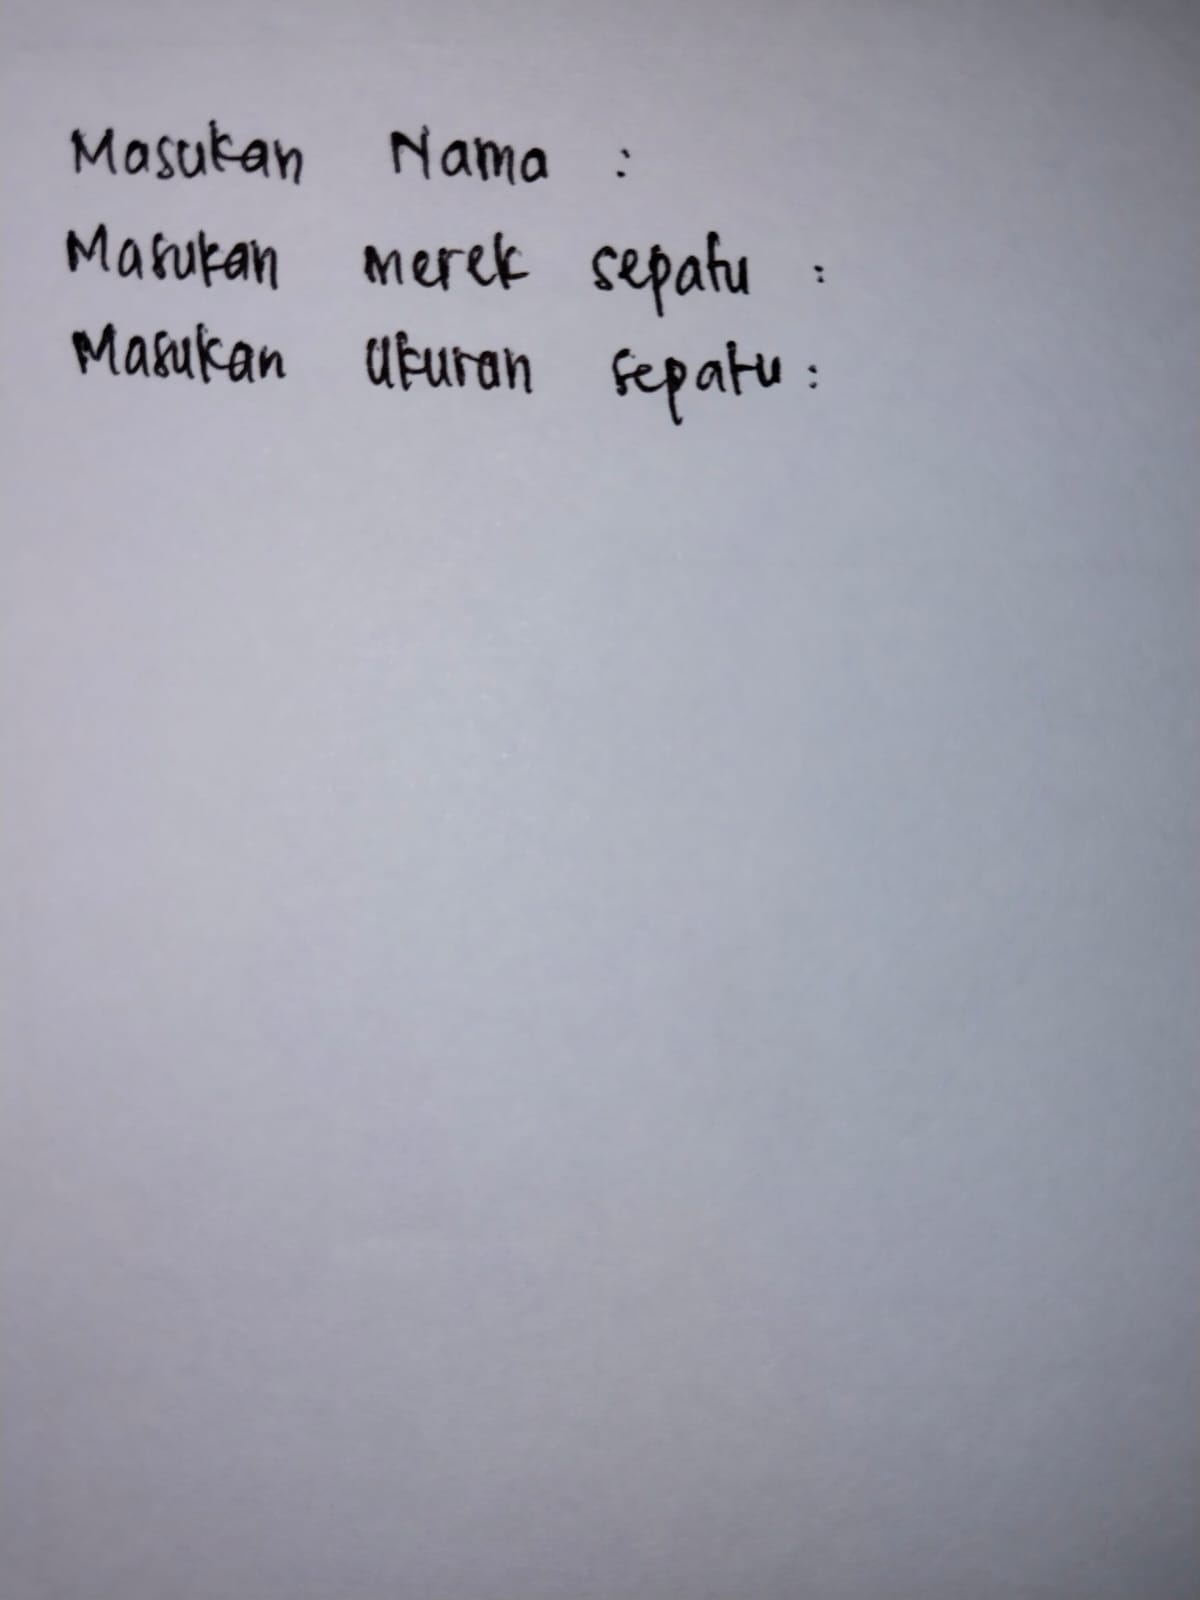 Masukan Nama :
Masukan merek sepatu :
Masukan Ukuran sepatu :